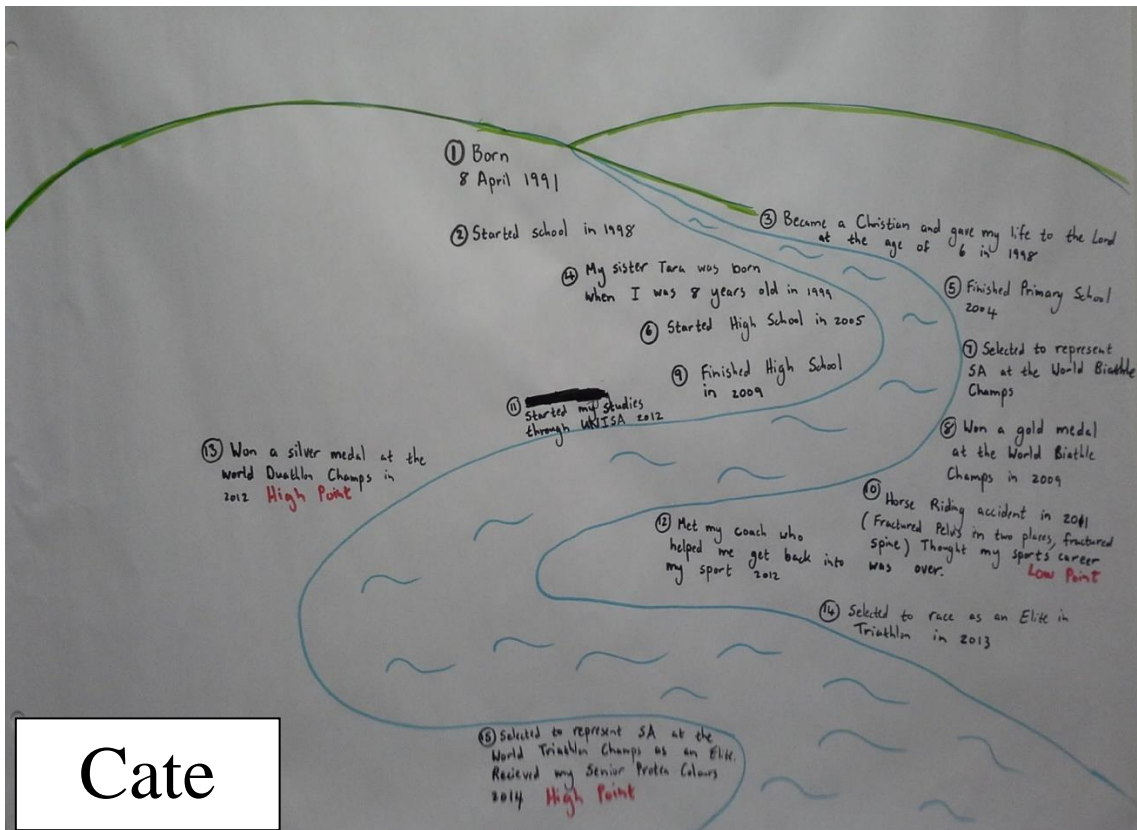 ① Born
8 April 1991
② Started school in 1998
③ Became a Christian and gave my life to the Lord
at the age of 6 in 1998
④ My sister Tara was born
when I was 8 years old in 1999
⑤ Finished Primary School
2004
⑥ Started High School in 2005
⑦ Selected to represent
SA at the World Biathle
Champs
⑧ Won a gold medal
at the World Biathle
Champs in 2009
⑨ Finished High School
in 2009
⑩ Horse Riding accident in 2011
(Fractured Pelvis in two places, fractured
spine) Thought my sports career
was over. Low Point
⑪
Started my studies
through UNISA 2012
⑫ Met my coach who
helped me get back into
my sport 2012
⑬ Won a silver medal at the
World Duathlon Champs in
2012 High Point
⑭ Selected to race as an Elite in
Triathlon in 2013
⑮ Selected to represent SA at the
World Triathlon Champs as an Elite.
Recieved my Senior Protea Colours
2014 High Point
Cate